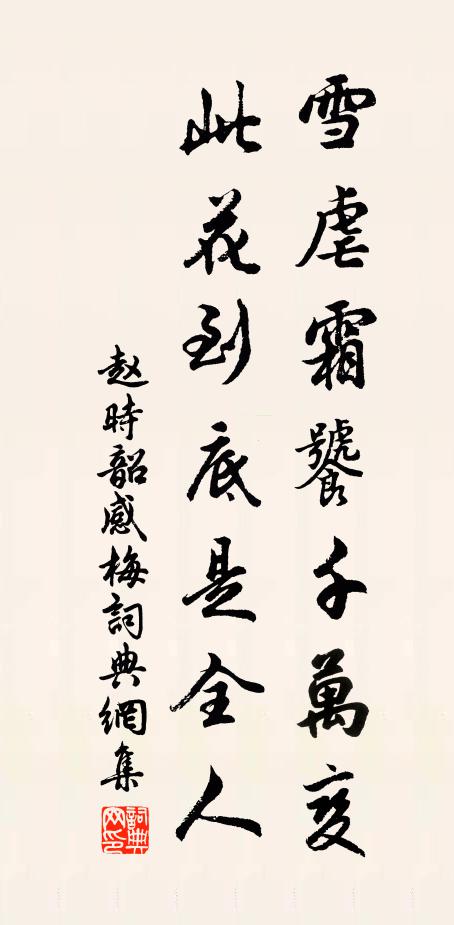 雪虐霜饕千萬变
此花到底是全人
赵時韶感梅詞典網集
詞典网印